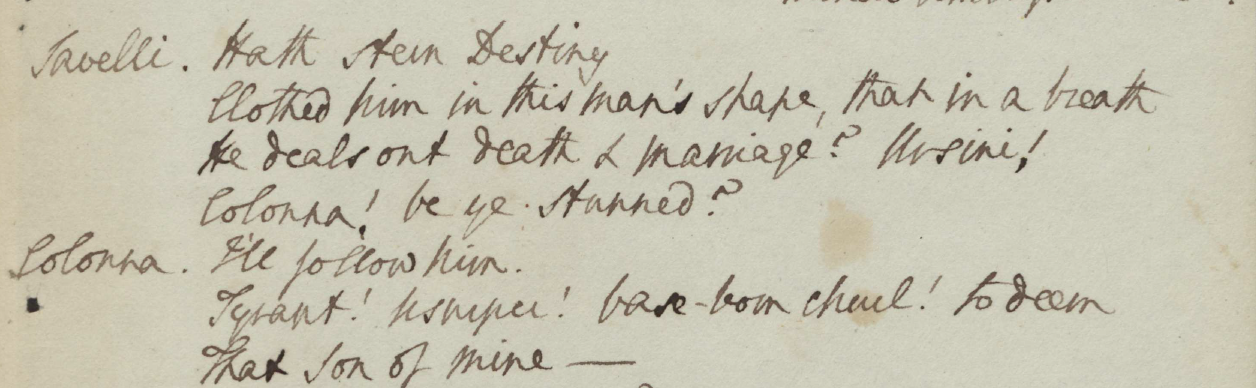 Savelli. Hath stern Destiny
Clothed him in this man's shape, that in a breath
He deals out death & marriage? Ursini!
Colonna! be ye stunned?
Colonna. I'll follow him.
Tyrant! Usurper! base-born churl! to deem
That Son of mine —